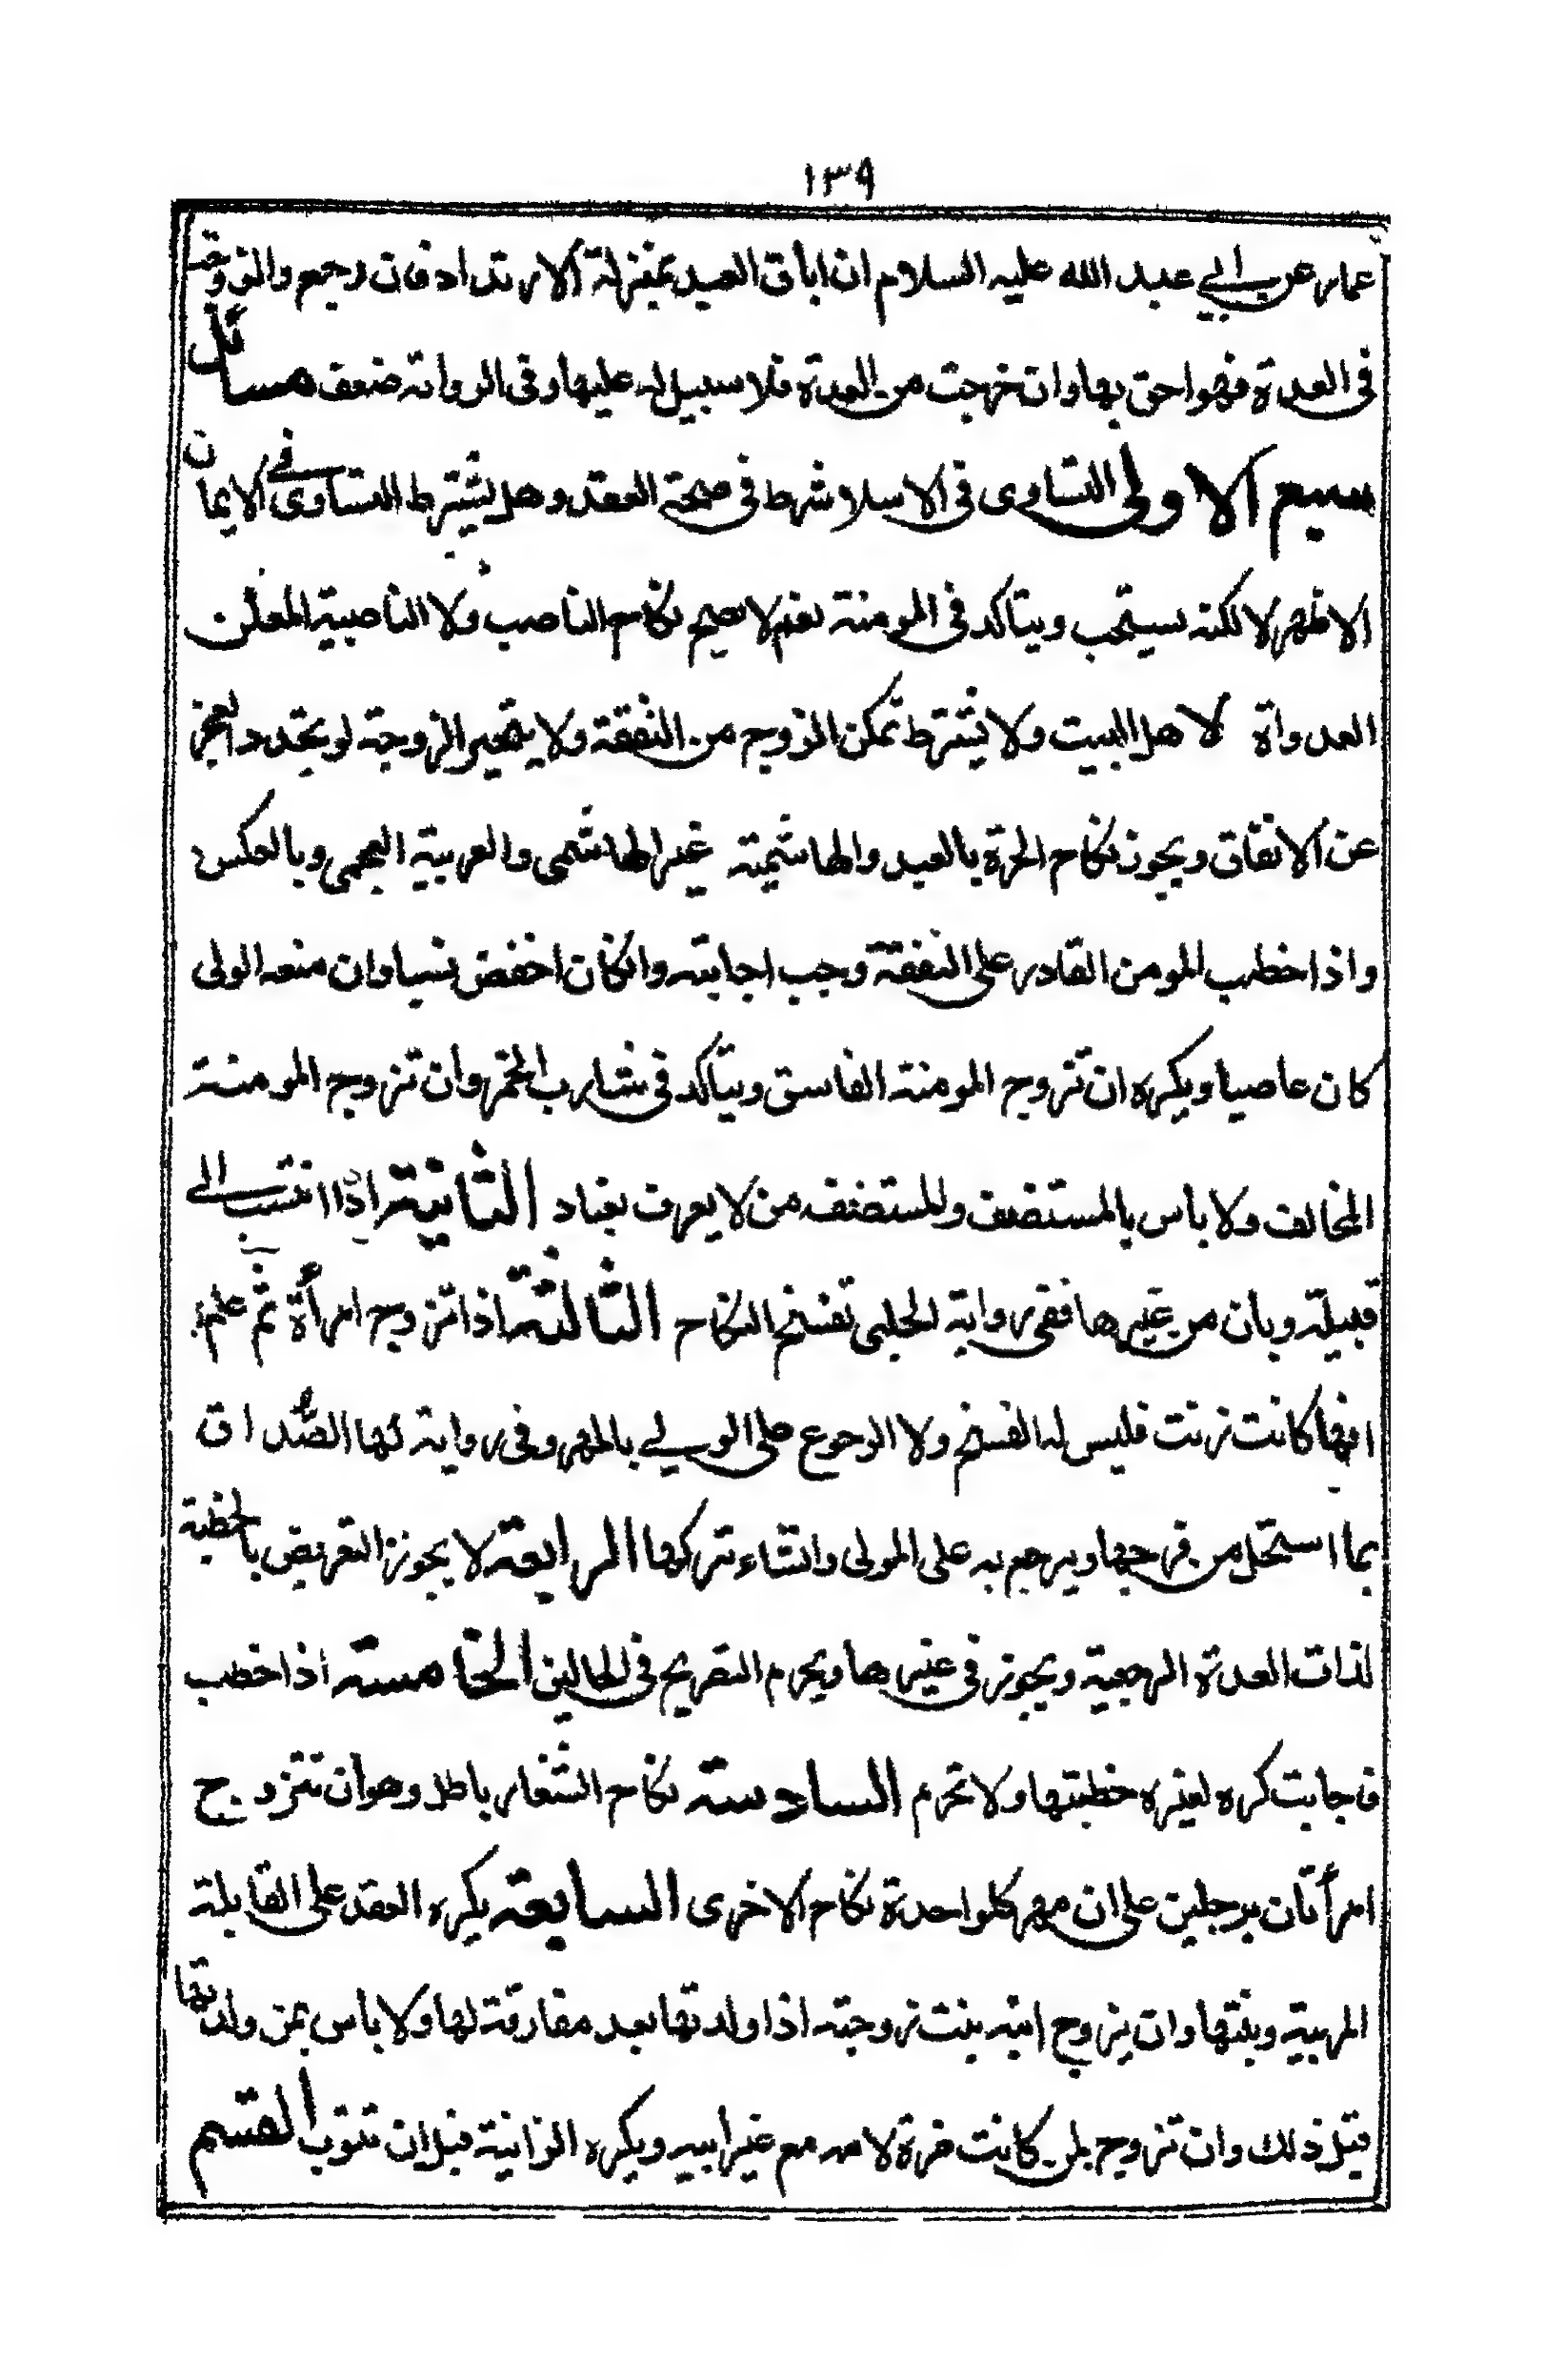 ١٣٩
عمار عن ابي عبد الله عليه السلام ان اباق العبد بمنزلة الارتداد فان رجع والزوجة
في العدة فهو احق بها وان خرجت من العدة فلا سبيل له عليها وفي الرواية ضعف مسائل
سبع الاولى التساوى في الاسلا شرط في صحة العقد وهل يشترط التساوى في الايمان
الاظهر لا لكنه يستحب ويتاكد في المومنة نعم لا يصح نكاح الناصب ولا الناصبية المعلن
العدواة لاهل البيت ولا يشترط تمكن الزوج من النفقة ولا يتخير الزوجة لو تجدد العجز
عن الانفاق ويجوز نكاح الحرة بالعبد والهاشمية غير الهاشمى والعربية العجمى وبالعكس
واذا خطب المومن القادر على النفقة وجب اجابته وانكان اخفض نسبا وان منعه الولى
كان عاصيا ويكره ان تزوج المومنة الفاسق ويتاكد في شارب الخمر وان تزوج المومنة
المخالف ولا باس بالمستضعف والمستضعف من لا يعرف بعناد الثانية اذا انتسب الى
قبيلة وبان من غيرها ففي رواية الحلبى تفسخ النكاح الثالثة اذا تزوج امرأة ثم علم
انها كانت زنت فليس له الفسخ ولا الرجوع على الولي بالمهر وفي رواية لها الصُّداق
بما استحل من فرجها ويرجع به على المولى وانشاء تركها الرابعة لا يجوز التعريض بالخطبة
لذات العدة الرجعية ويجوز في غيرها ويحرم التصريح في الحالين الخامسة اذا خطب
فاجابت كره لغيره خطبتها ولا تحرم السادسة نكاح الشغار باطل وهو ان تتزوج
امرأتان برجلين على ان مهر كلواحدة نكاح الاخرى السابعة يكره العقد على القابلة
المربية وبنتها وان يزوج ابنه بنت زوجته اذا ولدتها بعد مفارقة لها ولا باس بمن ولدتها
قبل ذلك وان تزوج بلمن كانت ضرة لامه مع غير ابيه ويكره الزانية قبل ان تتوب القسم